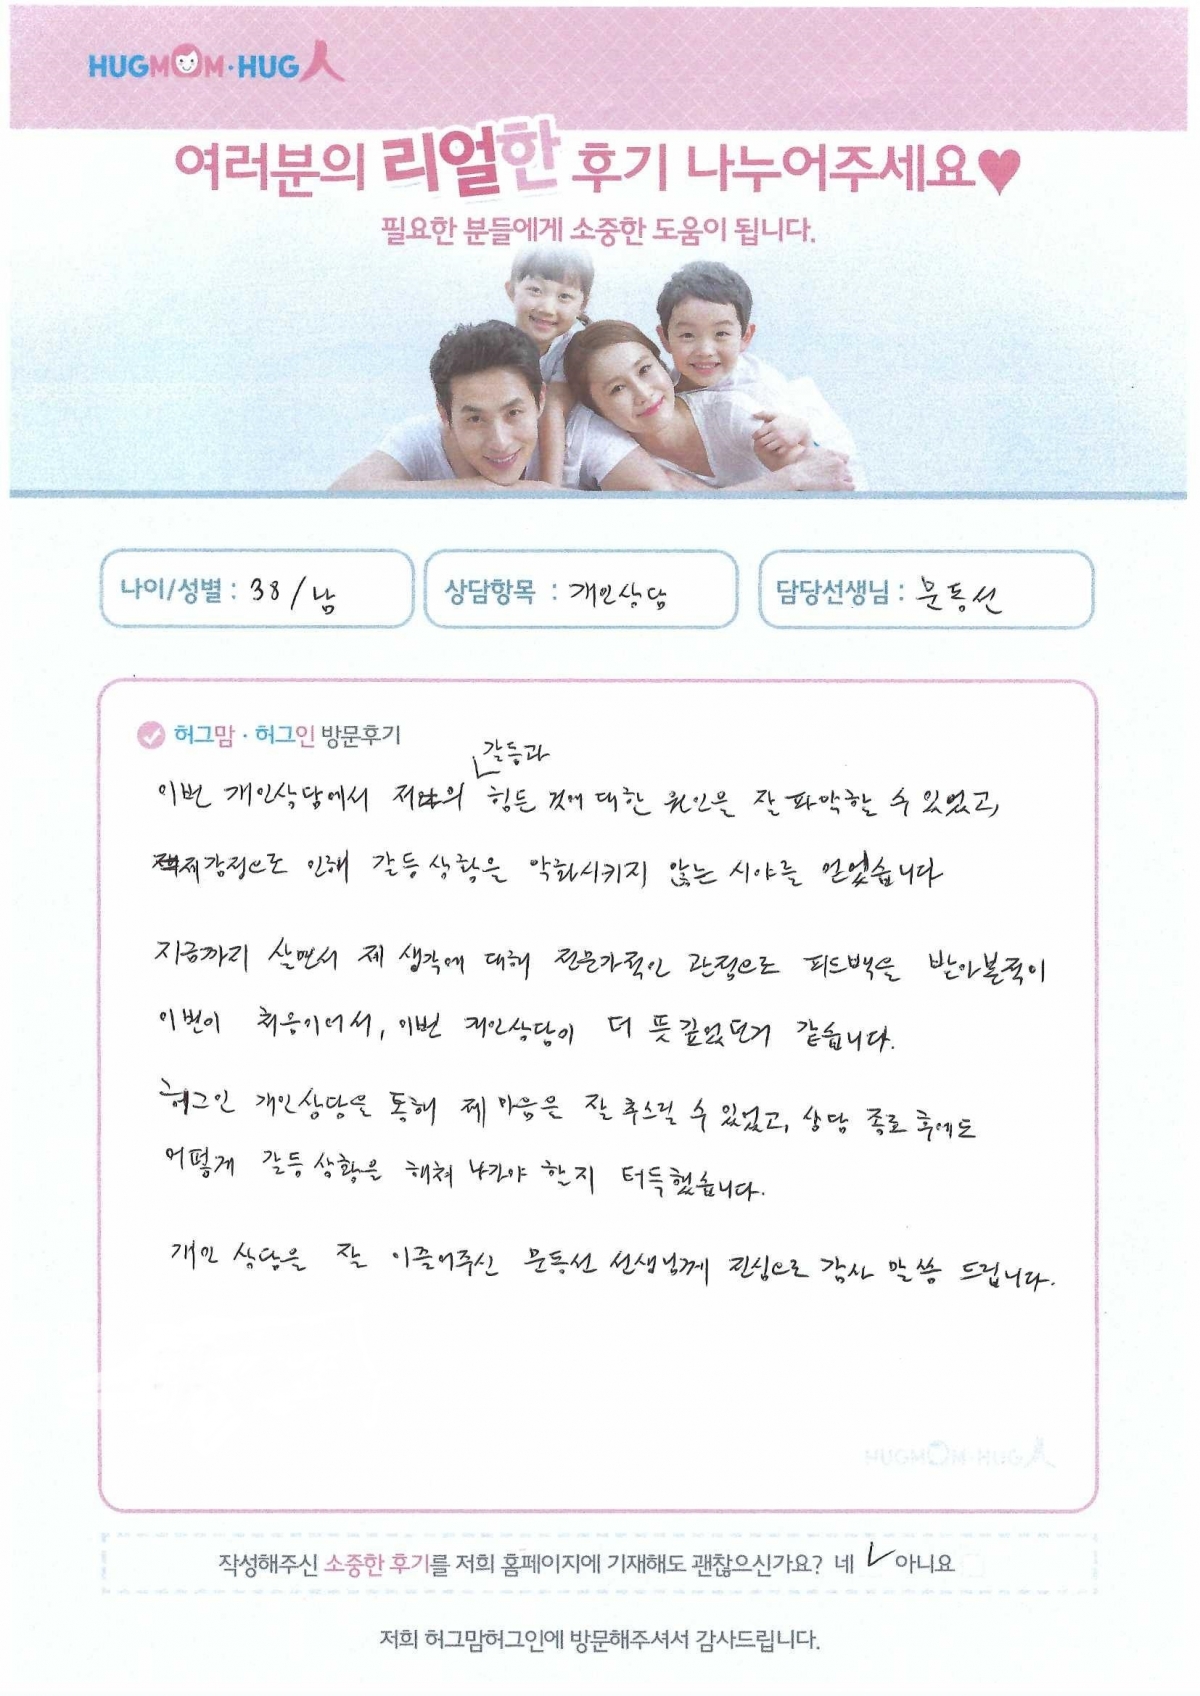 HUGMOM·HUG人
여러분의 리얼한 후기 나누어주세요♥
필요한 분들에게 소중한 도움이 됩니다.
나이/성별 : 38 / 남
상담항목 : 개인상담
담당선생님 : 문동선
허그맘 · 허그인 방문후기
갈등과
이번 개인상담에서 저의 힘든 것에 대한 원인을 잘 파악할 수 있었고,
제 감정으로 인해 갈등 상황을 악화시키지 않는 시야를 얻었습니다
지금까지 살면서 제 생각에 대해 전문가적인 관점으로 피드백을 받아본적이
이번이 처음이어서, 이번 개인상담이 더 뜻깊었던거 같습니다.
허그인 개인상담을 통해 제 마음을 잘 추스릴 수 있었고, 상담 종료 후에도
어떻게 갈등 상황을 헤쳐 나가야 할지 터득했습니다.
개인 상담을 잘 이끌어주신 문동선 선생님께 진심으로 감사 말씀 드립니다.
HUGMOM·HUG人
작성해주신 소중한 후기를 저희 홈페이지에 기재해도 괜찮으신가요? 네 ✓ 아니요
저희 허그맘허그인에 방문해주셔서 감사드립니다.